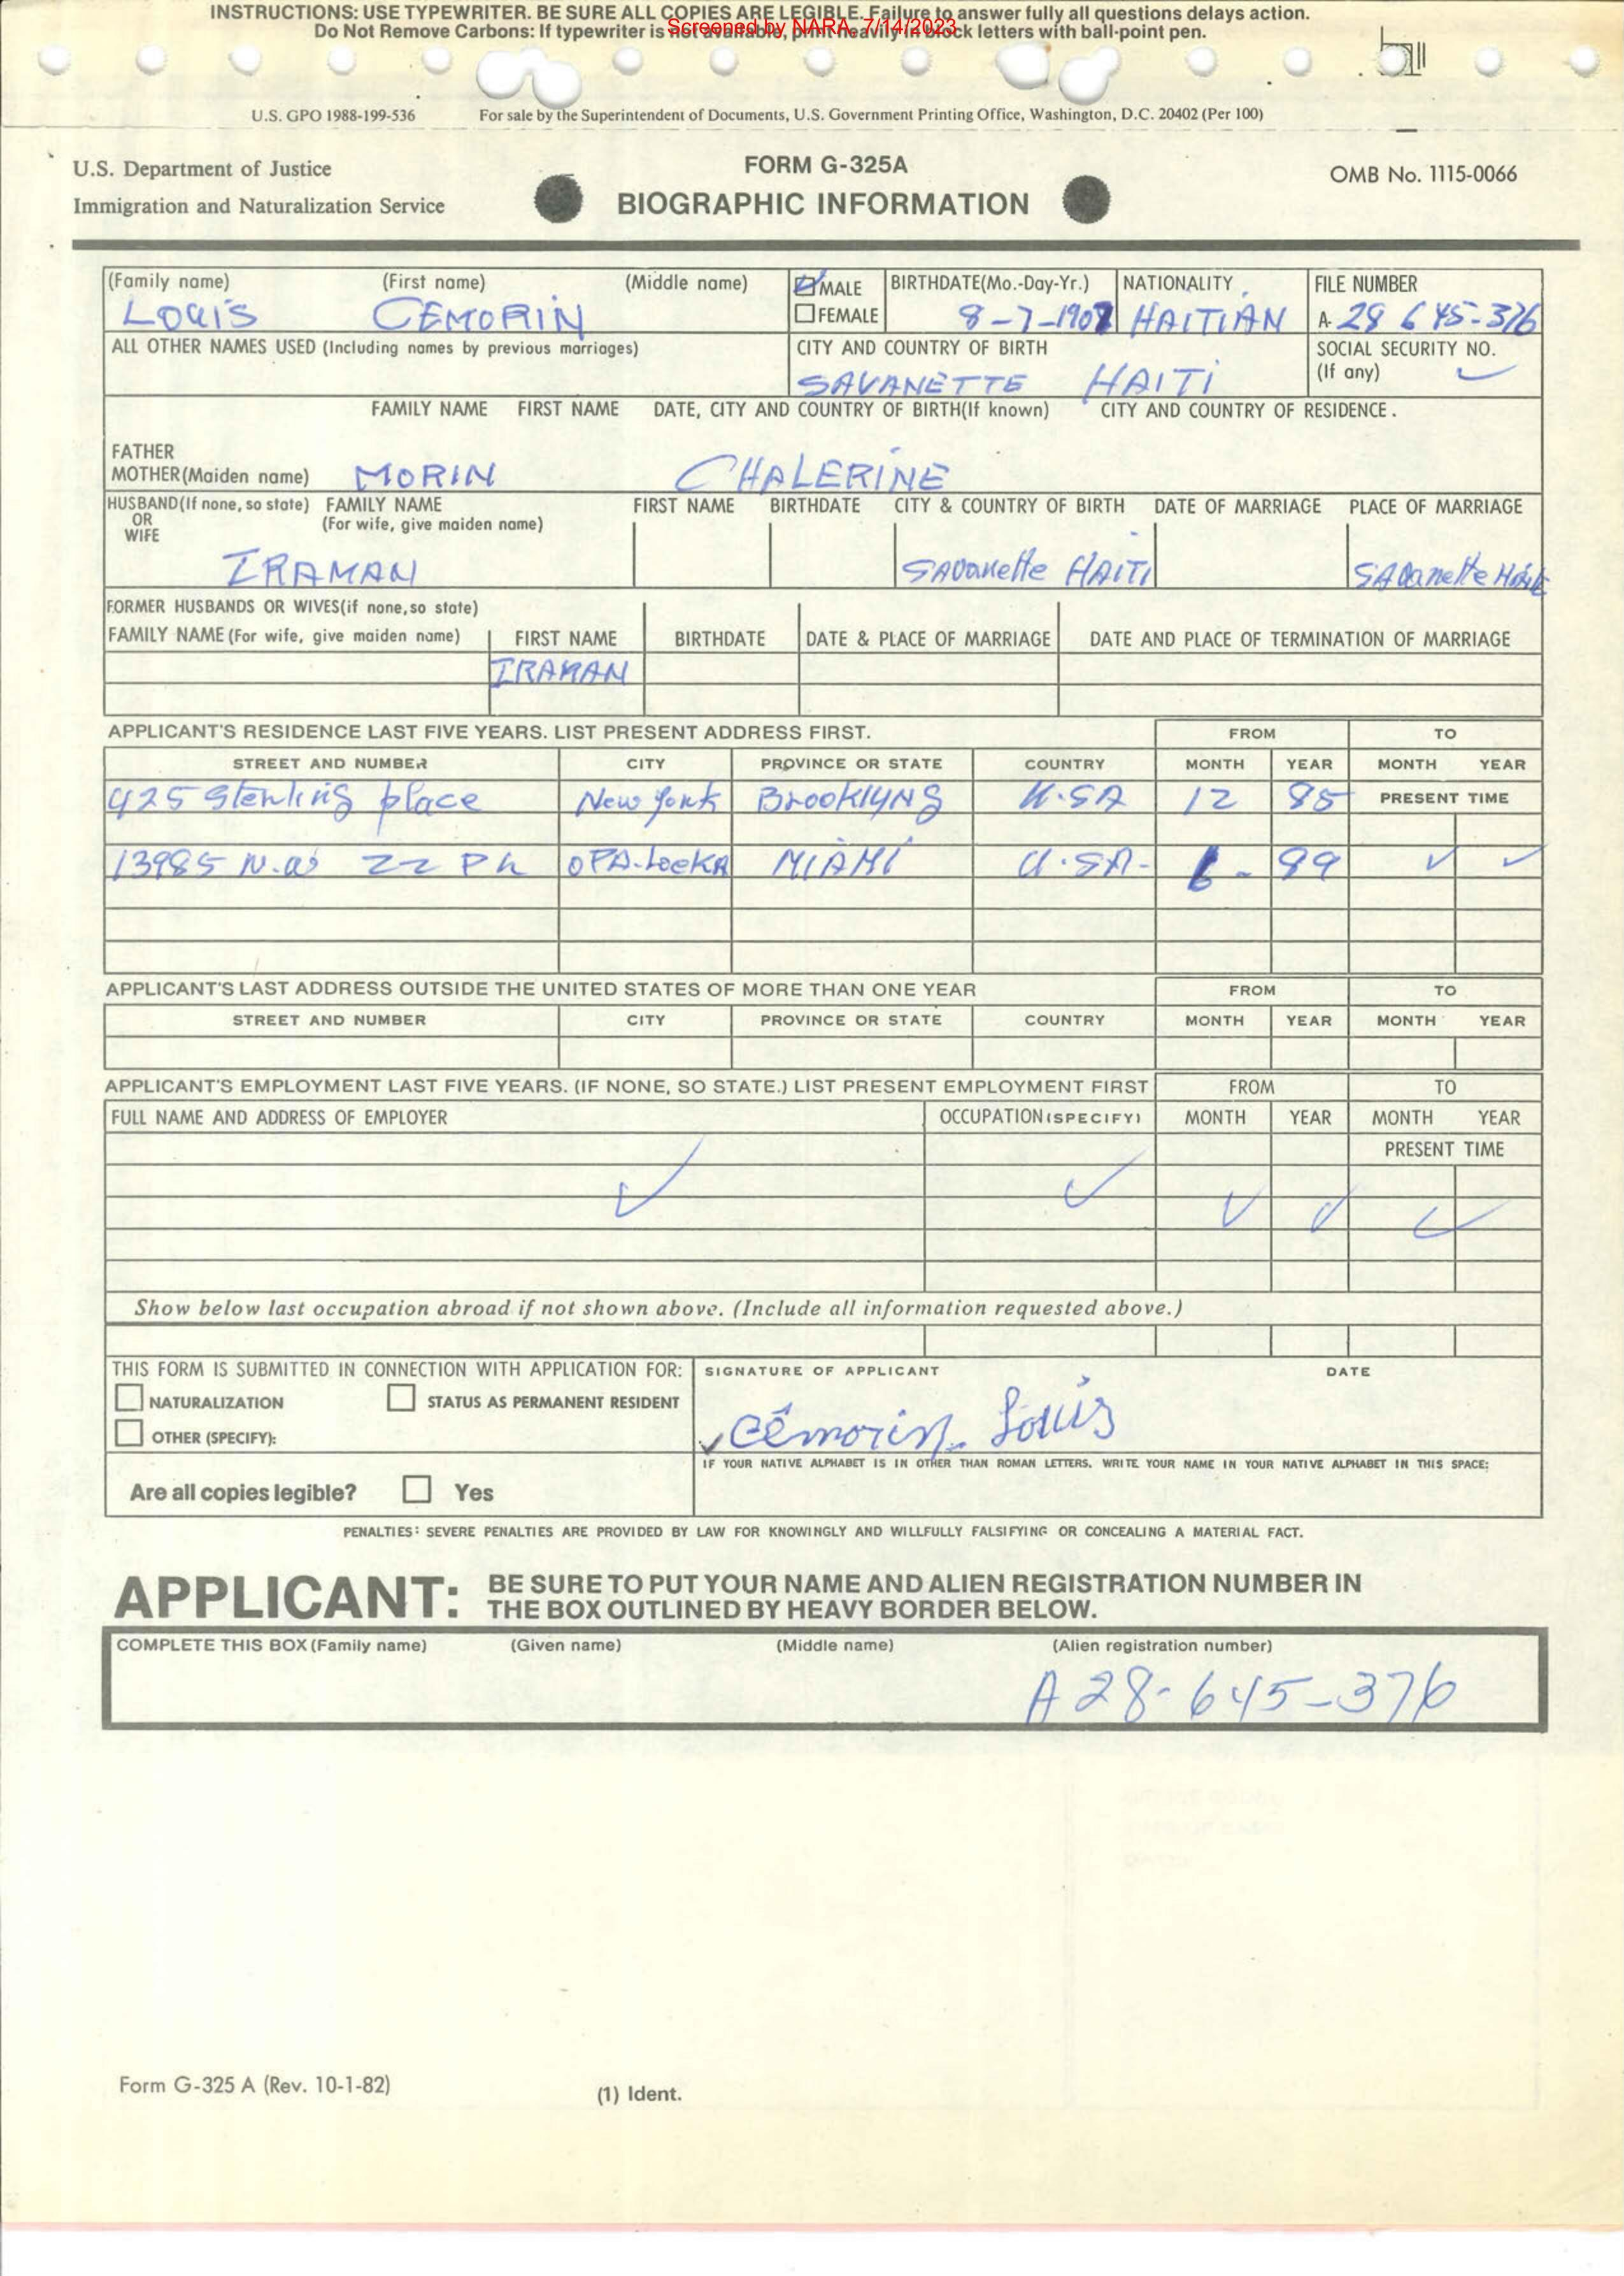 INSTRUCTIONS: USE TYPEWRITER. BE SURE ALL COPIES ARE LEGIBLE. Failure to answer fully all questions delays action.
Screened by NARA, 7/14/2023
Do Not Remove Carbons: If typewriter is not available, print heavily in block letters with ball-point pen.
U.S. GPO 1988-199-536 For sale by the Superintendent of Documents, U.S. Government Printing Office, Washington, D.C. 20402 (Per 100)
U.S. Department of Justice
Immigration and Naturalization Service
FORM G-325A
BIOGRAPHIC INFORMATION
OMB No. 1115-0066
(Family name) (First name) (Middle name) MALE BIRTHDATE(Mo.-Day-Yr.) NATIONALITY FILE NUMBER
LOUIS CEMORIN FEMALE 8-7-1907 HAITIAN A- 28 645-376
ALL OTHER NAMES USED (Including names by previous marriages) CITY AND COUNTRY OF BIRTH SOCIAL SECURITY NO.
(If any)
SAVANETTE HAITI
FAMILY NAME FIRST NAME DATE, CITY AND COUNTRY OF BIRTH(If known) CITY AND COUNTRY OF RESIDENCE.
FATHER
MOTHER(Maiden name) MORIN CHALERINE
HUSBAND(If none, so state) FAMILY NAME FIRST NAME BIRTHDATE CITY & COUNTRY OF BIRTH DATE OF MARRIAGE PLACE OF MARRIAGE
OR (For wife, give maiden name)
WIFE
IRAMAN Savanette HAITI SAvanette Haiti
FORMER HUSBANDS OR WIVES(if none, so state)
FAMILY NAME (For wife, give maiden name) FIRST NAME BIRTHDATE DATE & PLACE OF MARRIAGE DATE AND PLACE OF TERMINATION OF MARRIAGE
IRAMAN
APPLICANT'S RESIDENCE LAST FIVE YEARS. LIST PRESENT ADDRESS FIRST. FROM TO
STREET AND NUMBER CITY PROVINCE OR STATE COUNTRY MONTH YEAR MONTH YEAR
425 Sterling place New York BrooklyNS U.SA 12 85 PRESENT TIME
13985 N.W 22 OPA-Locka MIAMI U.SA- 6-
APPLICANT'S LAST ADDRESS OUTSIDE THE UNITED STATES OF MORE THAN ONE YEAR FROM TO
STREET AND NUMBER CITY PROVINCE OR STATE COUNTRY MONTH YEAR MONTH YEAR
APPLICANT'S EMPLOYMENT LAST FIVE YEARS. (IF NONE, SO STATE.) LIST PRESENT EMPLOYMENT FIRST FROM TO
FULL NAME AND ADDRESS OF EMPLOYER OCCUPATION (SPECIFY) MONTH YEAR MONTH YEAR
PRESENT TIME
Show below last occupation abroad if not shown above. (Include all information requested above.)
THIS FORM IS SUBMITTED IN CONNECTION WITH APPLICATION FOR: SIGNATURE OF APPLICANT DATE
NATURALIZATION STATUS AS PERMANENT RESIDENT
OTHER (SPECIFY): Cémorin Louis
IF YOUR NATIVE ALPHABET IS IN OTHER THAN ROMAN LETTERS, WRITE YOUR NAME IN YOUR NATIVE ALPHABET IN THIS SPACE:
Are all copies legible? Yes
PENALTIES: SEVERE PENALTIES ARE PROVIDED BY LAW FOR KNOWINGLY AND WILLFULLY FALSIFYING OR CONCEALING A MATERIAL FACT.
APPLICANT: BE SURE TO PUT YOUR NAME AND ALIEN REGISTRATION NUMBER IN
THE BOX OUTLINED BY HEAVY BORDER BELOW.
COMPLETE THIS BOX (Family name) (Given name) (Middle name) (Alien registration number)
A 28-645-376
Form G-325 A (Rev. 10-1-82)
(1) Ident.